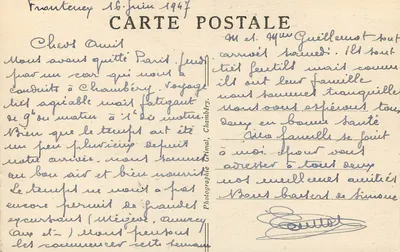 Frontenex 16 juin 1947
CARTE POSTALE
Chers Amis
Nous avons quitté Paris jeudi
par un car qui nous a
conduits à Chambéry. Voyage
très agréable mais fatigant
de 9h du matin à 1h du matin
Bien que le temps ait été
un peu pluvieux depuis
notre arrivée. nous sommes
au bon air et bien nourris
Le temps ne nous a pas
encore permis de grandes
excursions (Mégève, Annecy
Aix etc) Nous pensons
les commencer cette semaine
Photographie Grimal, Chambéry.
M et Mme Guillemot sont
arrivés samedi. Ils sont
très gentils mais comme
ils ont leur famille
nous sommes tranquilles
Nous vous espérons tous
deux en bonne santé
Ma famille se joint
à moi pour vous
adresser à tous deux
nos meilleures amitiés
Bons baisers de Simone